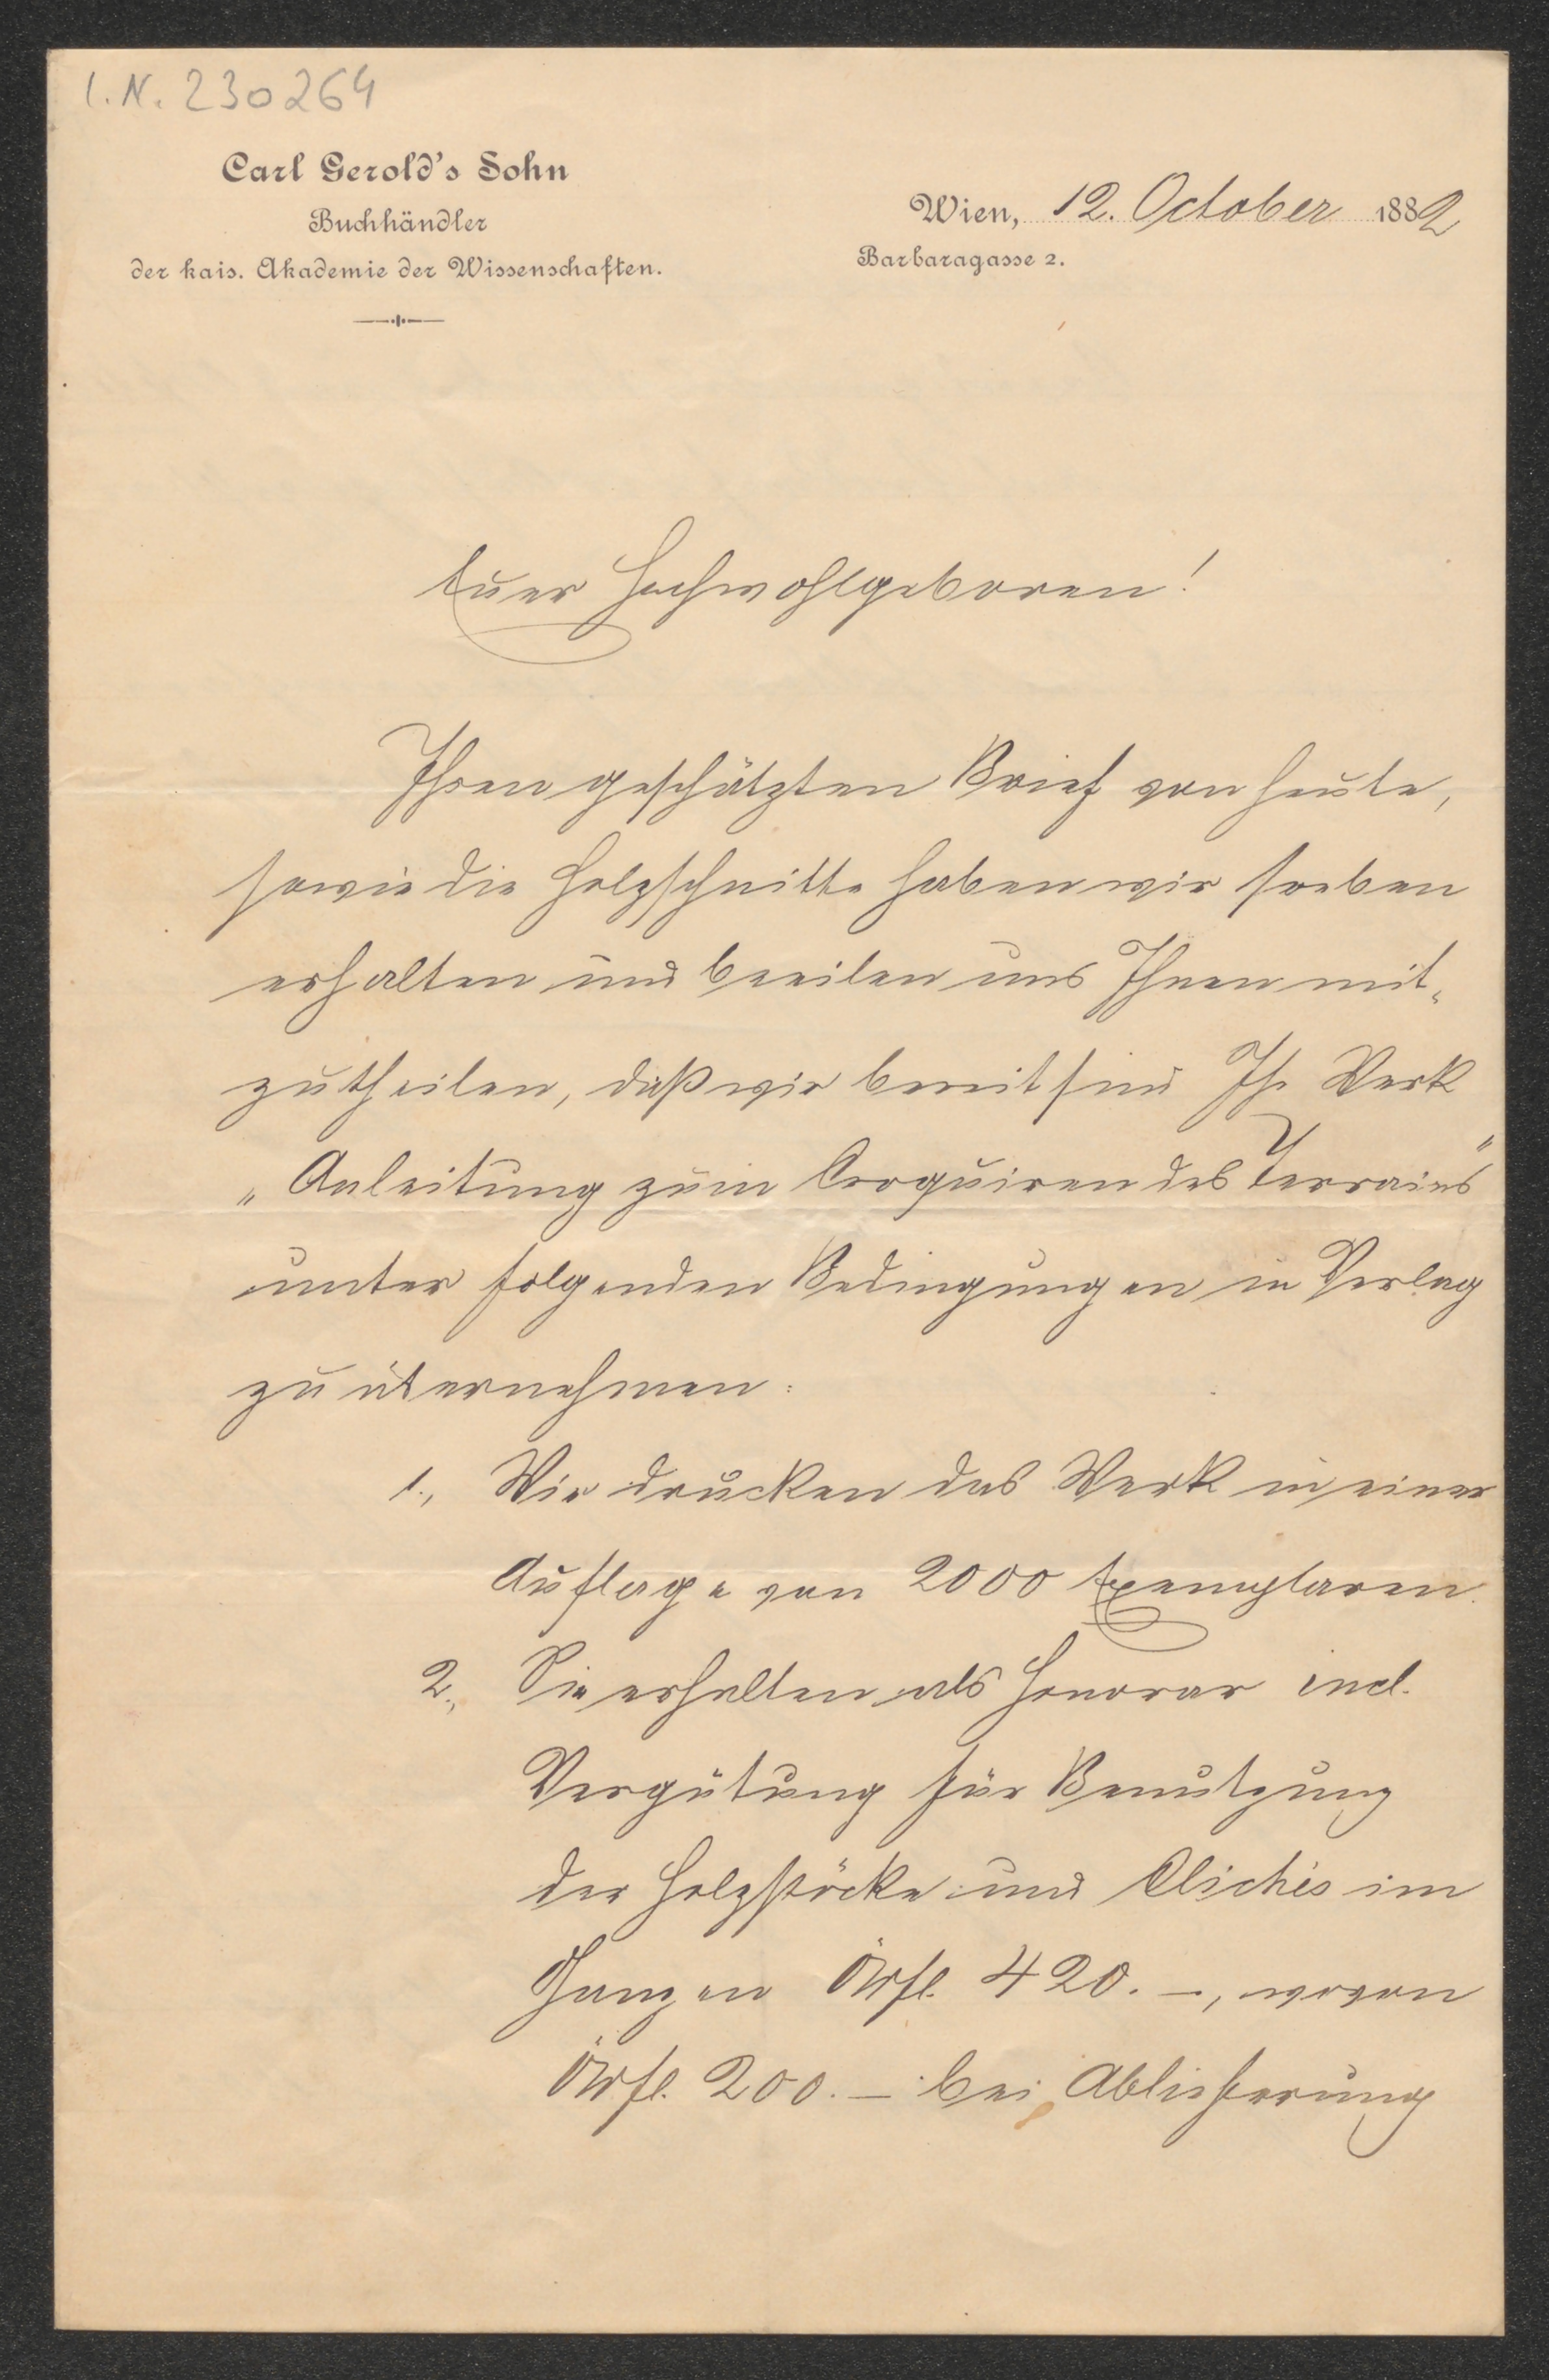 I.N. 230264
Carl Gerold's Sohn
Buchhändler
der kais. Akademie der Wissenschaften.
Wien, 12. October 1882
Barbaragasse 2.
Euer Hochwohlgeboren!
Ihren geschätzten Brief von heute,
sowie die Holzschnitte haben wir soeben
erhalten und beeilen uns Ihnen mit-
zutheilen, daß wir bereit sind Ihr Werk
„Anleitung zum Croquiren des Terrains"
unter folgenden Bedingungen in Verlag
zu übernehmen:
1., Wir drucken das Werk in einer
Auflage von 2000 Exemplaren.
2., Sie erhalten als Honorar incl.
Vergütung für Benutzung
der Holzstöcke und Clichés im
Ganzen ÖWfl. 420.–, wovon
ÖWfl. 200.– bei Ablieferung